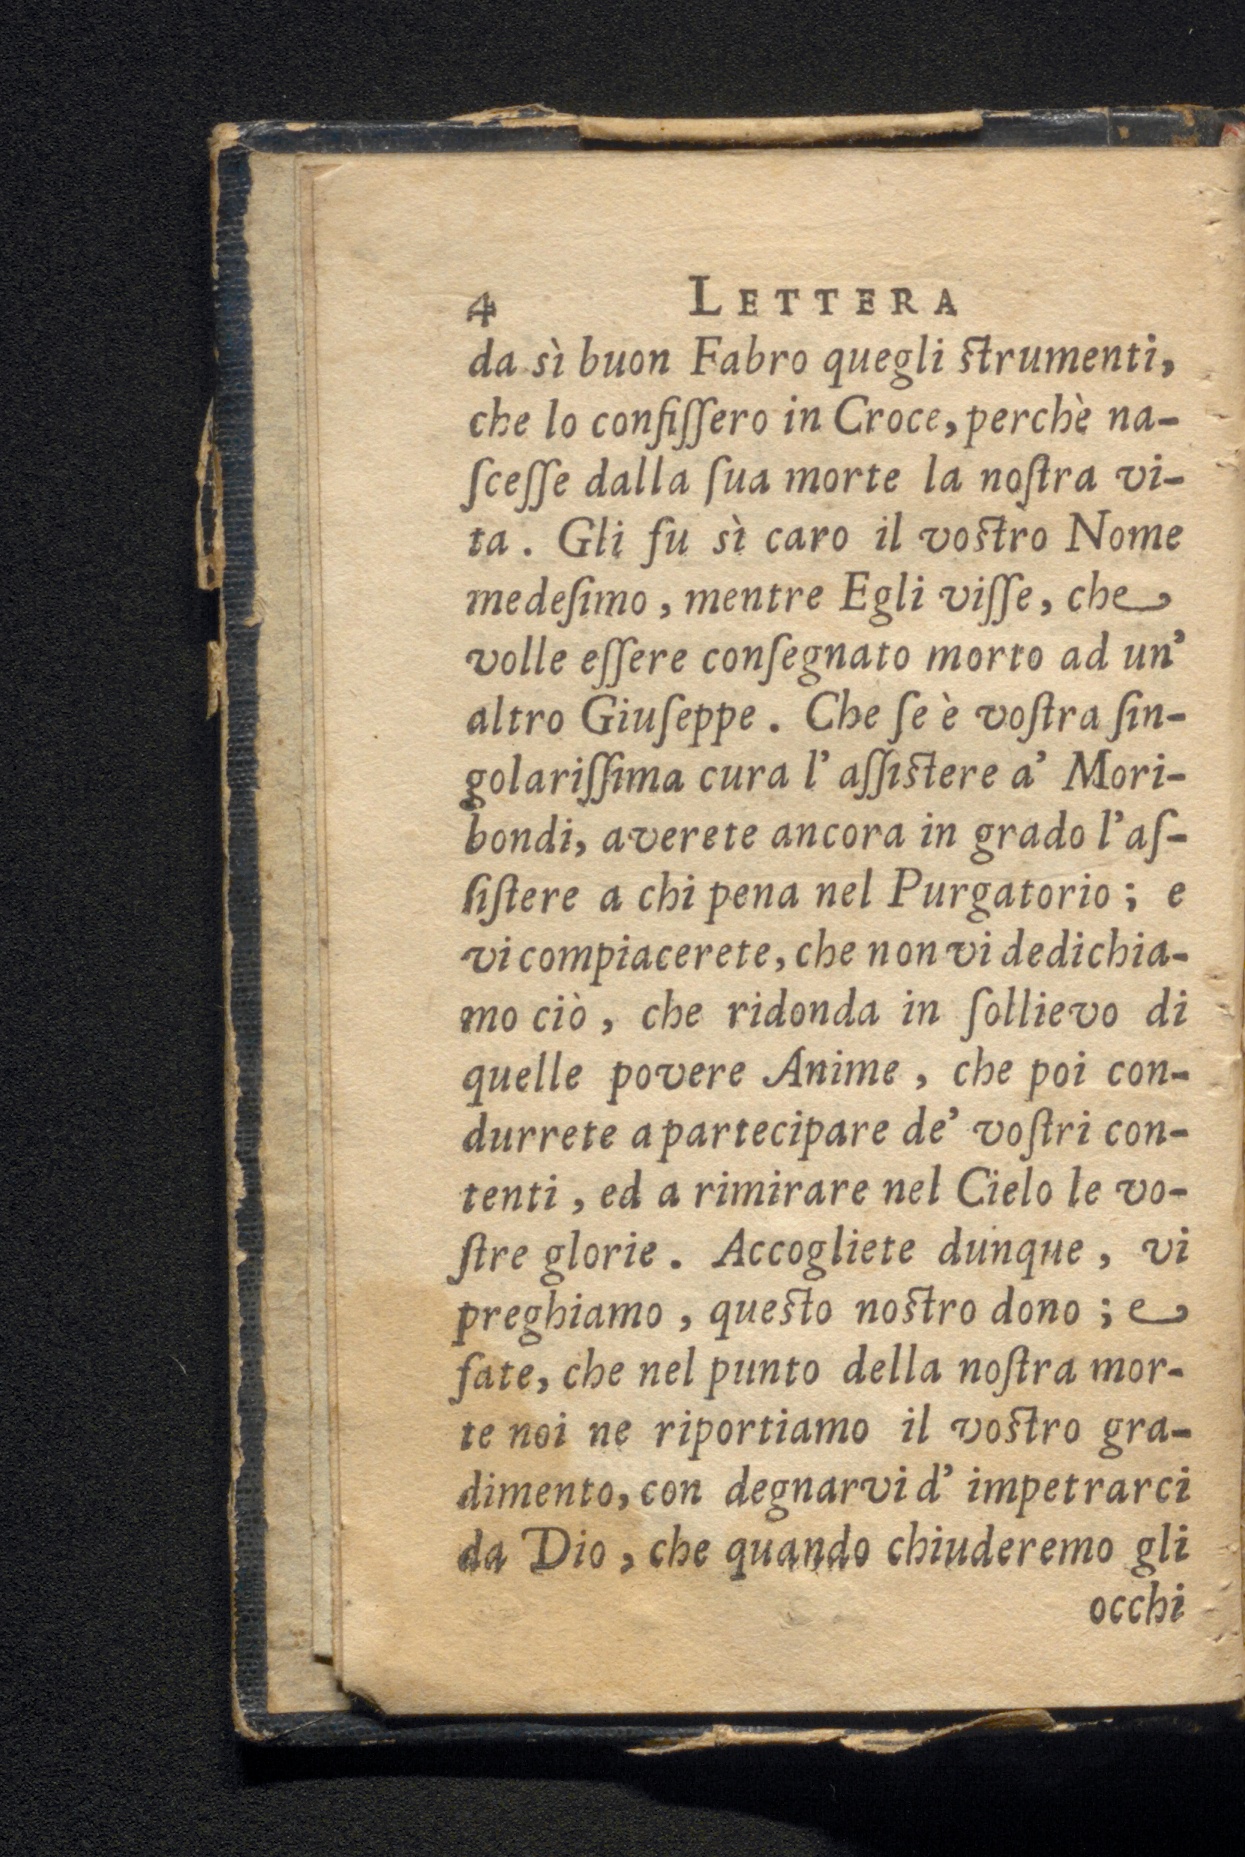 4 LETTERA
da sì buon Fabro quegli strumenti,
che lo confiſſero in Croce, perchè na-
ſceſſe dalla ſua morte la noſtra vi-
ta. Gli fu sì caro il vostro Nome
medeſimo, mentre Egli viſſe, che
volle eſſere conſegnato morto ad un'
altro Giuſeppe. Che ſe è voſtra ſin-
golariſſima cura l' aſſistere a' Mori-
bondi, averete ancora in grado l'aſ-
ſiſtere a chi pena nel Purgatorio; e
vi compiacerete, che non vi dedichia-
mo ciò, che ridonda in ſollievo di
quelle povere Anime, che poi con-
durrete a partecipare de' voſtri con-
tenti, ed a rimirare nel Cielo le vo-
ſtre glorie. Accogliete dunque, vi
preghiamo, questo nostro dono; e
fate, che nel punto della noſtra mor-
te noi ne riportiamo il vostro gra-
dimento, con degnarvi d' impetrarci
da Dio, che quando chiuderemo gli
occhi